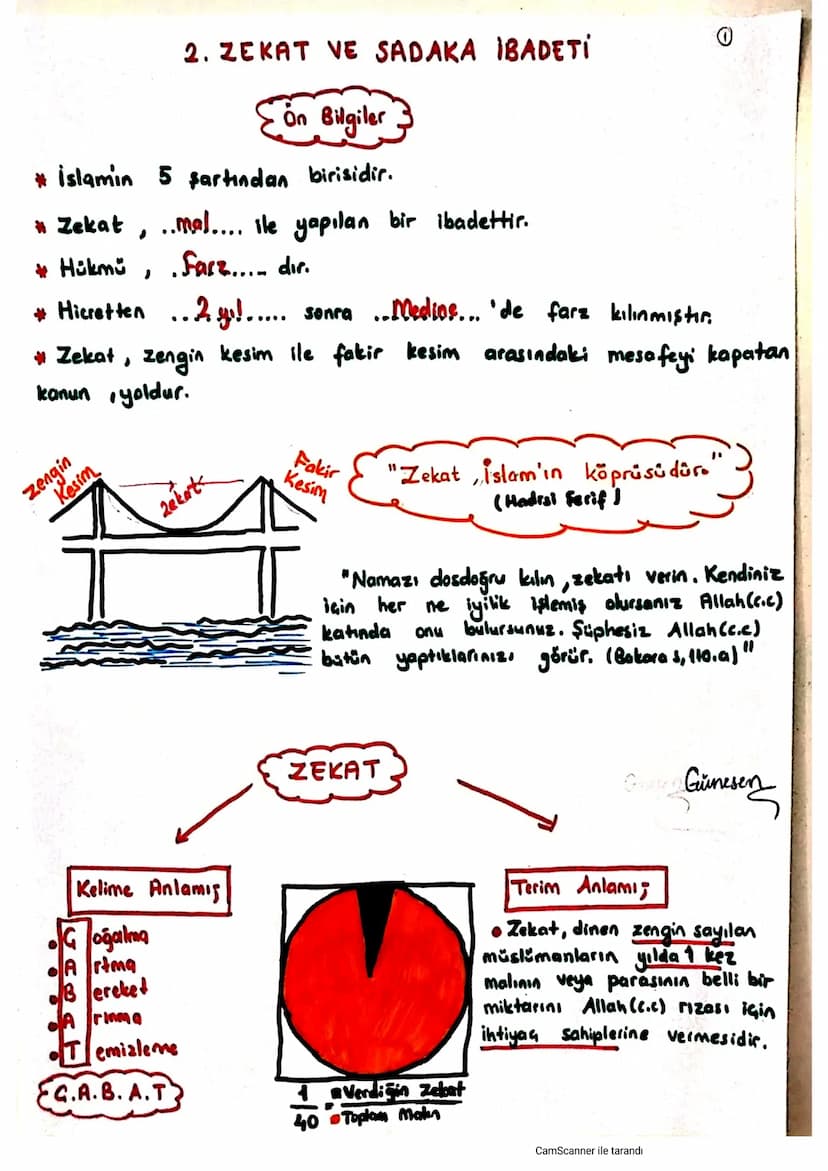 ①
2. ZEKAT VE SADAKA İBADETİ
Ön Bilgiler
* İslam'ın 5 şartından birisidir.
* Zekat , ..mal.... ile yapılan bir ibadettir.
* Hükmü , .Farz..... dır.
* Hicretten ..2 yıl..... sonra ..Medine... 'de farz kılınmıştır.
* Zekat , zengin kesim ile fakir kesim arasındaki mesafeyi kapatan
kanun , yoldur.
Zengin
Kesim
Zekat
Fakir
Kesim
"Zekat , İslam'ın köprüsüdür."
(Hadisi Şerif)
"Namazı dosdoğru kılın , zekatı verin. Kendiniz
için her ne iyilik işlemiş olursanız Allah(c.c)
katında onu bulursunuz. Şüphesiz Allah(c.c)
bütün yaptıklarınızı görür. (Bakara s, 110.a)"
ZEKAT
Günesen
Kelime Anlamı;
• Çoğalma
• Artma
• Bereket
• Arınma
• Temizleme
Ç.A.B.A.T
1/40 = Verdiğin Zekat
Toplam Malın
Terim Anlamı;
• Zekat, dinen zengin sayılan
müslümanların yılda 1 kez
malının veya parasının belli bir
miktarını Allah(c.c) rızası için
ihtiyaç sahiplerine vermesidir.
CamScanner ile tarandı